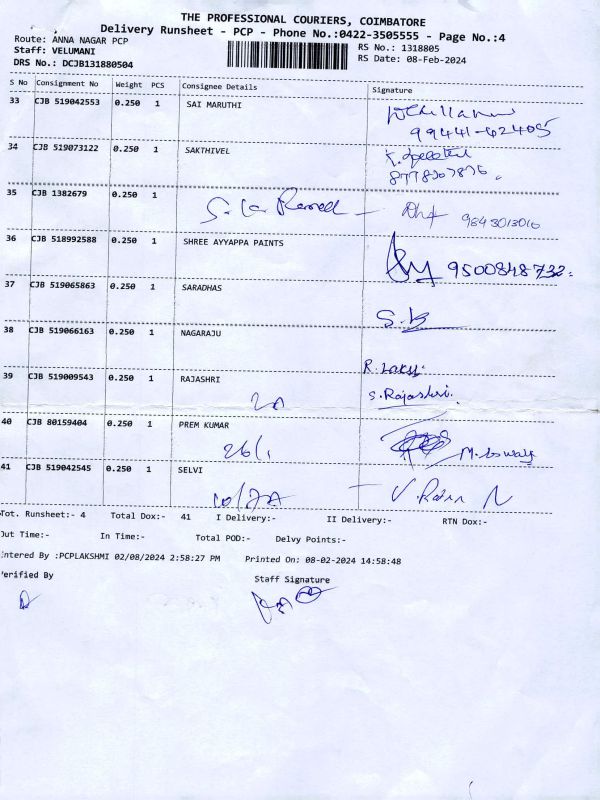 THE PROFESSIONAL COURIERS, COIMBATORE
Delivery Runsheet - PCP - Phone No.:0422-3505555 - Page No.:4
Route: ANNA NAGAR PCP
Staff: VELUMANI
DRS No.: DCJB131880504
RS No.: 1318805
RS Date: 08-Feb-2024
S No Consignment No Weight PCS Consignee Details Signature
33 CJB 519042553 0.250 1 SAI MARUTHI
99441-62405
34 CJB 519073122 0.250 1 SAKTHIVEL
35 CJB 1382679 0.250 1
9843013010
36 CJB 518992588 0.250 1 SHREE AYYAPPA PAINTS
9500848732
37 CJB 519065863 0.250 1 SARADHAS
S.B
38 CJB 519066163 0.250 1 NAGARAJU
39 CJB 519009543 0.250 1 RAJASHRI
S.Rajashri.
40 CJB 80159404 0.250 1 PREM KUMAR
26/1
41 CJB 519042545 0.250 1 SELVI
Tot. Runsheet:- 4 Total Dox:- 41 I Delivery:- II Delivery:- RTN Dox:-
Out Time:- In Time:- Total POD:- Delvy Points:-
ntered By :PCPLAKSHMI 02/08/2024 2:58:27 PM Printed On: 08-02-2024 14:58:48
erified By Staff Signature